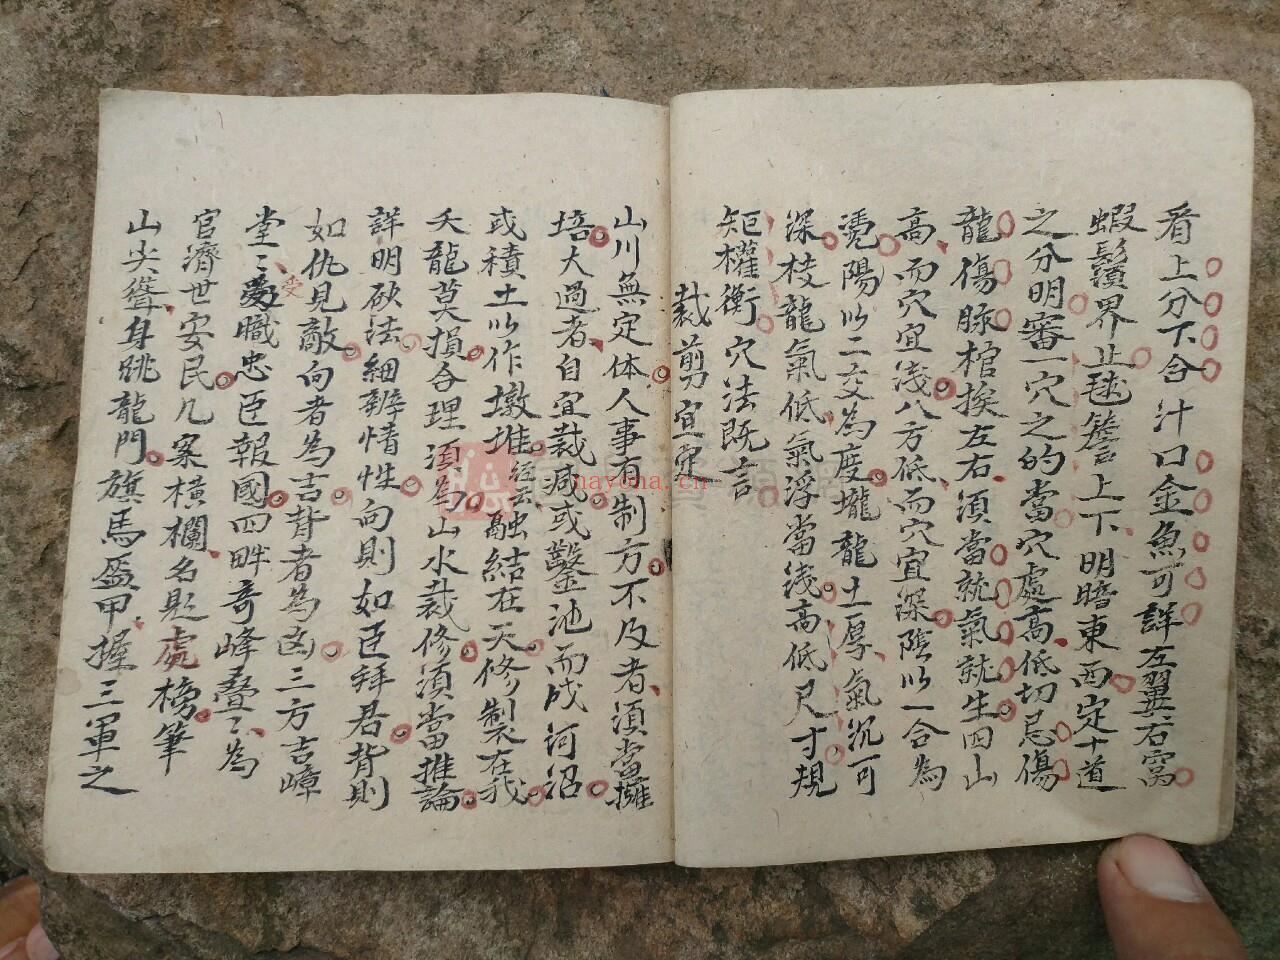 看上分下合汁口金魚可詳左翼右窩
蝦鬚界止毬簷上下明瞻東西定十道
之分明審一穴之的當穴處高低切忌傷
龍傷脉棺挨左右須當就氣就生四山
高而穴宜淺八方低而穴宜深陰以一合為
度陽以二交為度壠龍土厚氣沉可
深枝龍氣低氣浮當淺高低尺寸規
矩權衡穴法既言
裁剪宜定
山川無定体人事有制方不及者須當擁
培大過者自宜裁減或鑿池而成河沼
或積土以作墩堆經云融結在天修製在我
夭龍莫損合理須為山水裁修須當推論
詳明砍法細辨情性向則如臣拜君背則
如仇見敵向者為吉背者為凶三方吉嶂
堂〻受職忠臣報國四畔奇峰疊〻為
官濟世安民几案橫欄名題處榜筆
山尖聳身跳龍門旗馬盔甲握三軍之
受
nayona.cn